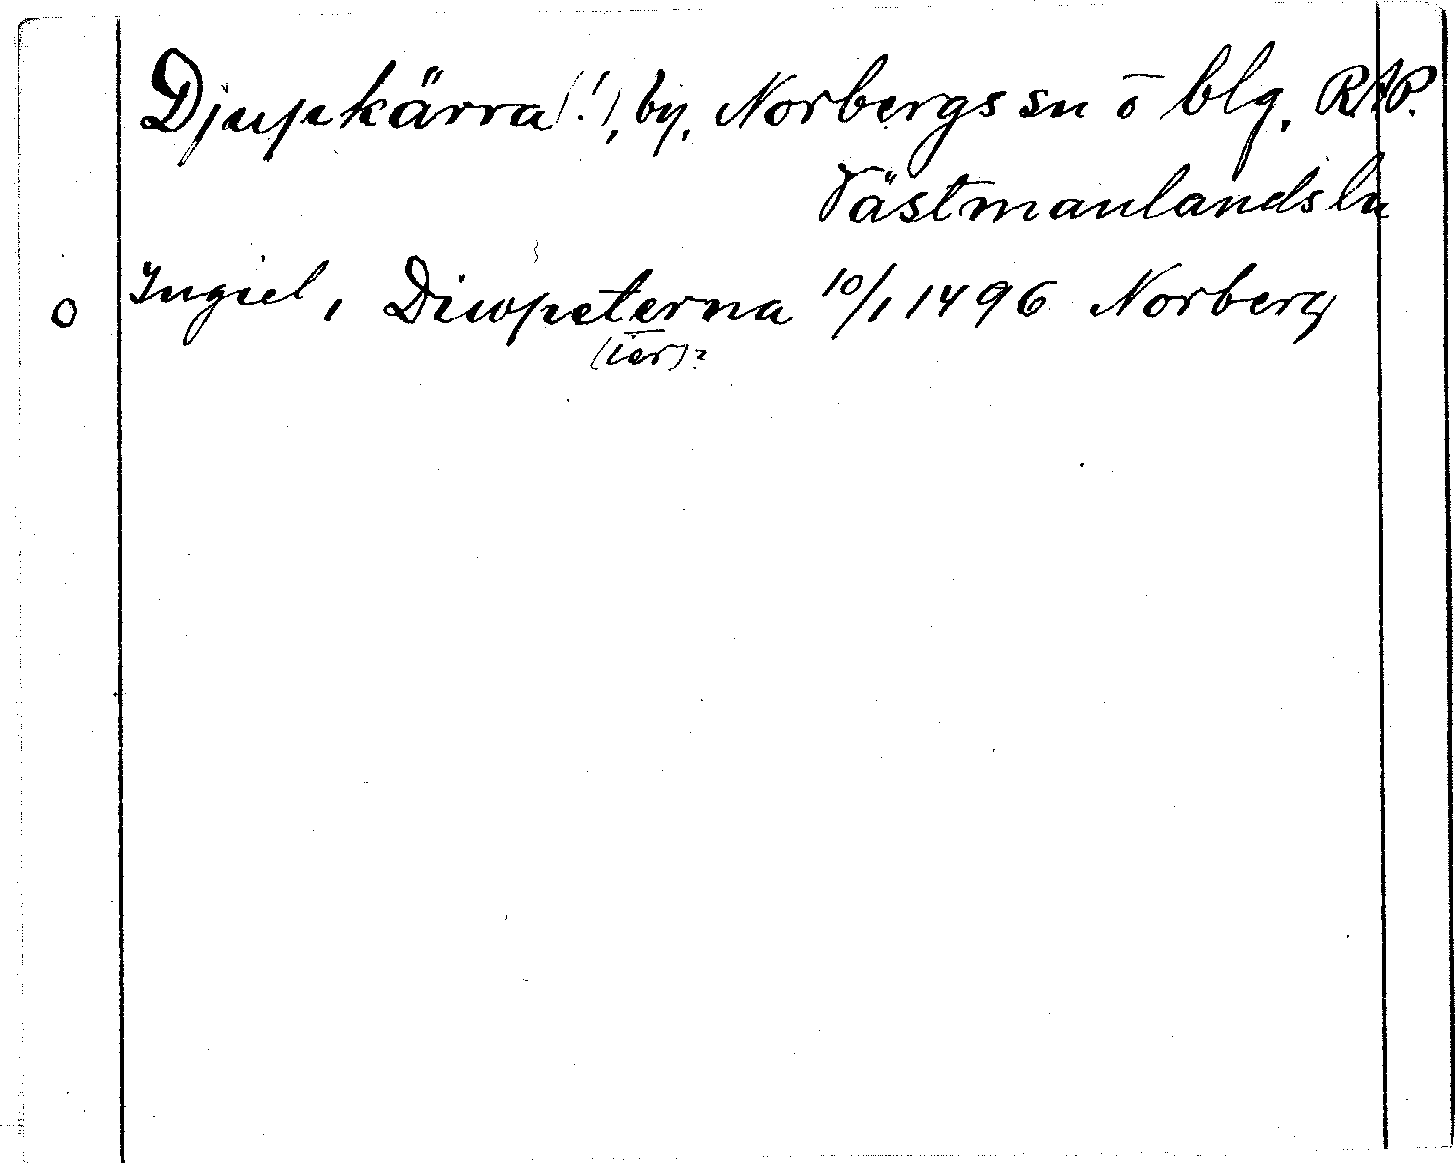 Djupkärra(!), by, Norbergs sn o blg. RAP.
Västmanlands ln
o Ingiel, Diwpeterna 10/1 1496 Norberg
(ier)?